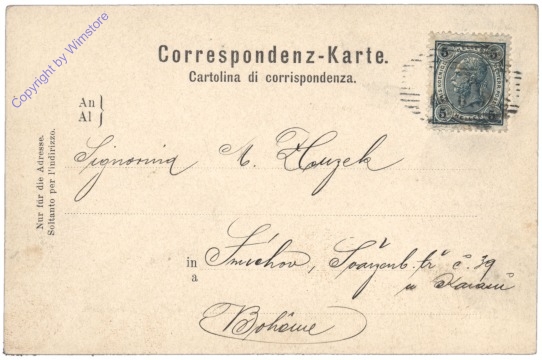 Copyright by Wimstore
Correspondenz-Karte.
Cartolina di corrispondenza.
An
Al
Nur für die Adresse.
Soltanto per l'indirizzo.
5 5
5 5
Signorina A. Houzek
in
a
Smíchov, Svarzenb. tř. č. 39
u
Bohême